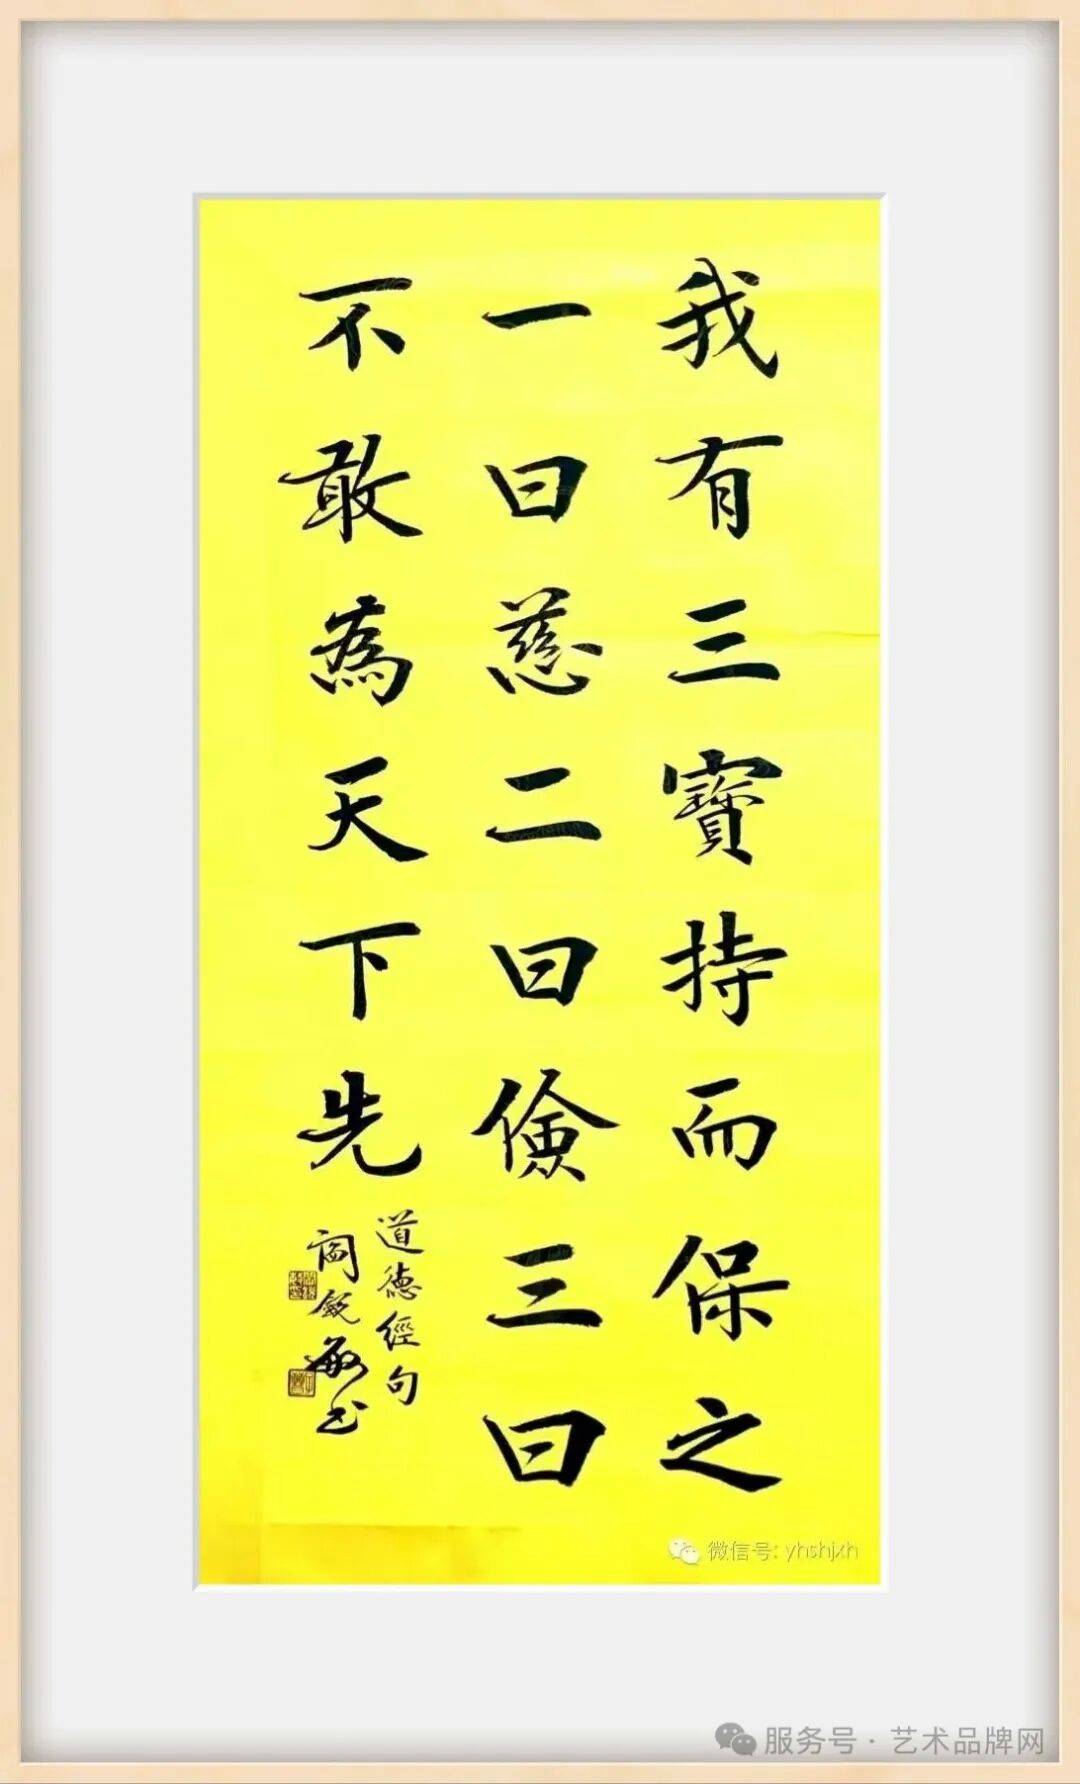 我有三寶持而保之
一曰慈二曰儉三曰
不敢為天下先
道德經句
閻銳敏书
微信号: yhshjxh
服务号 · 艺术品牌网